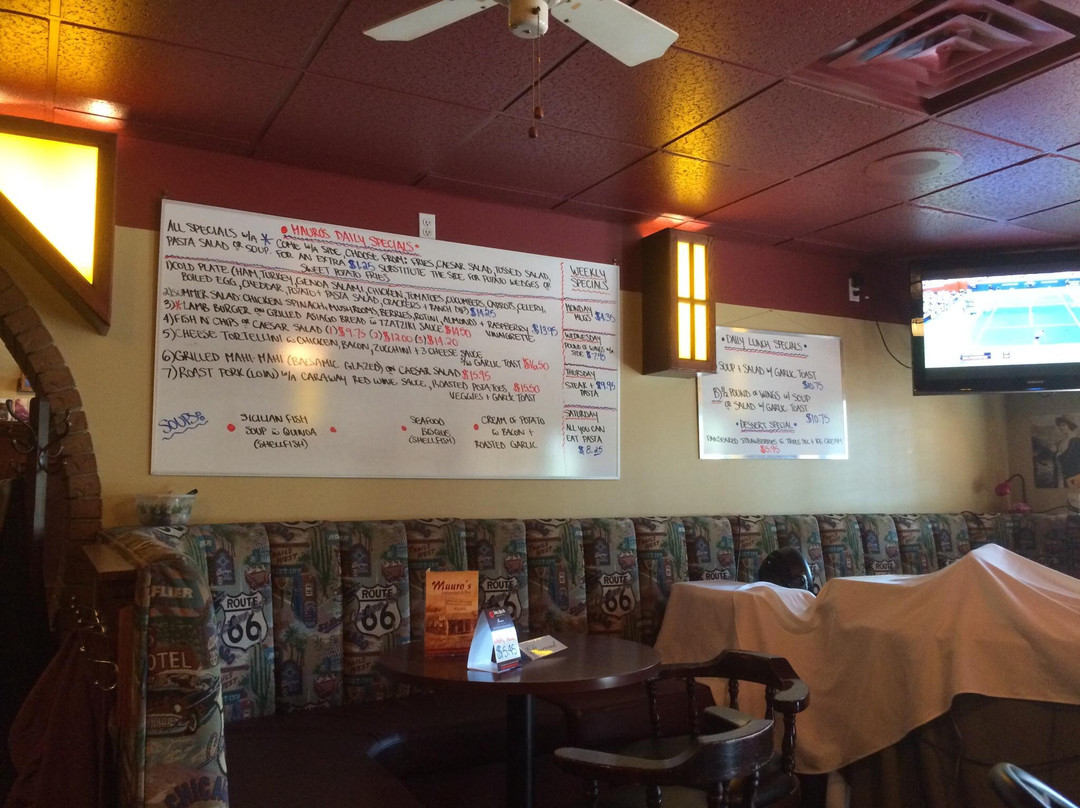 • MAURO'S DAILY SPECIALS •
ALL SPECIALS W/A * COME W/A SIDE, CHOOSE FROM: FRIES, CAESAR SALAD, TOSSED SALAD,
PASTA SALAD OR SOUP. FOR AN EXTRA $1.25 SUBSTITUTE THE SIDE FOR POTATO WEDGES OR
SWEET POTATO FRIES
1) COLD PLATE (HAM, TURKEY, GENOA SALAMI, CHICKEN, TOMATOES, CUCUMBERS, CARROTS, CELERY,
BOILED EGG, CHEDDAR, POTATO + PASTA SALAD, CRACKERS + RANCH DIP) $14.25
2) SUMMER SALAD CHICKEN SPINACH, MUSHROOMS, BERRIES, ROTINI, ALMOND) + RASPBERRY VINAIGRETTE $13.95
3) * LAMB BURGER ON GRILLED ASIAGO BREAD TZATZIKI SAUCE $14.00
4) FISH N' CHIPS OR CAESAR SALAD (1) $9.75 (2) $12.00 (3) $14.20
5) CHEESE TORTELLINI CHICKEN, BACON, ZUCCHINI + 3 CHEESE SAUCE
GARLIC TOAST $16.50
6) GRILLED MAHI-MAHI (BALSAMIC GLAZED) OR CAESAR SALAD $15.95
7) ROAST PORK (LOIN) W/A CARAWAY RED WINE SAUCE, ROASTED POTATOES, $15.50
VEGGIES + GARLIC TOAST
SOUPS:
• SICILIAN FISH
SOUP QUINOA
(SHELLFISH)
• SEAFOOD
BISQUE
(SHELLFISH)
• CREAM OF POTATO
BACON +
ROASTED GARLIC
WEEKLY
SPECIALS
MONDAY
MUGS $4.35
WEDNESDAY
POUND OF WINGS W/
SIDE $7.45
THURSDAY
STEAK + $9.95
PASTA
SATURDAY
ALL YOU CAN
EAT PASTA
$8.25
• DAILY LUNCH SPECIALS •
SOUP + SALAD W/ GARLIC TOAST
$10.75
B) 1/2 POUND OF WINGS W/ SOUP
OR SALAD W/ GARLIC TOAST
$10.75
• DESSERT SPECIAL •
STRAWBERRIES TRIPLE SEC + ICE CREAM
$5.95
ROUTE
66
ROUTE
66
ROUTE
66
ROUTE
66
ROUTE
ROUTE
Mauro's
$5.45
HOTEL
CHICAGO